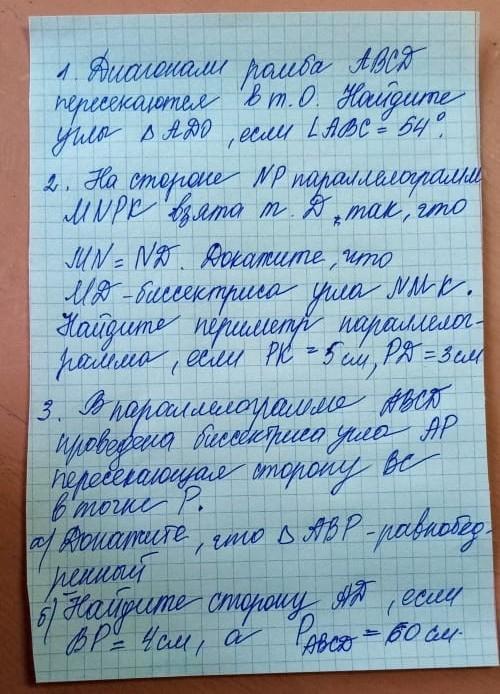 1. Диагонали ромба ABCD
пересекаются в т. O. Найдите
углы △ ADO, если ∠ABC = 54°.
2. На стороне NP параллелограмм
MNPK взята т. D, так, что
MN = ND. Докажите, что
MD - биссектриса угла NMK.
Найдите периметр параллелог-
рамма, если PK = 5 см, PD = 3 см
3. В параллелограмме ABCD
проведена биссектриса угла AP
пересекающая сторону BC
в точке P.
а) Докажите, что △ ABP - равнобед-
ренный
б) Найдите сторону AD, если
BP = 4 см, а P ABCD = 60 см.